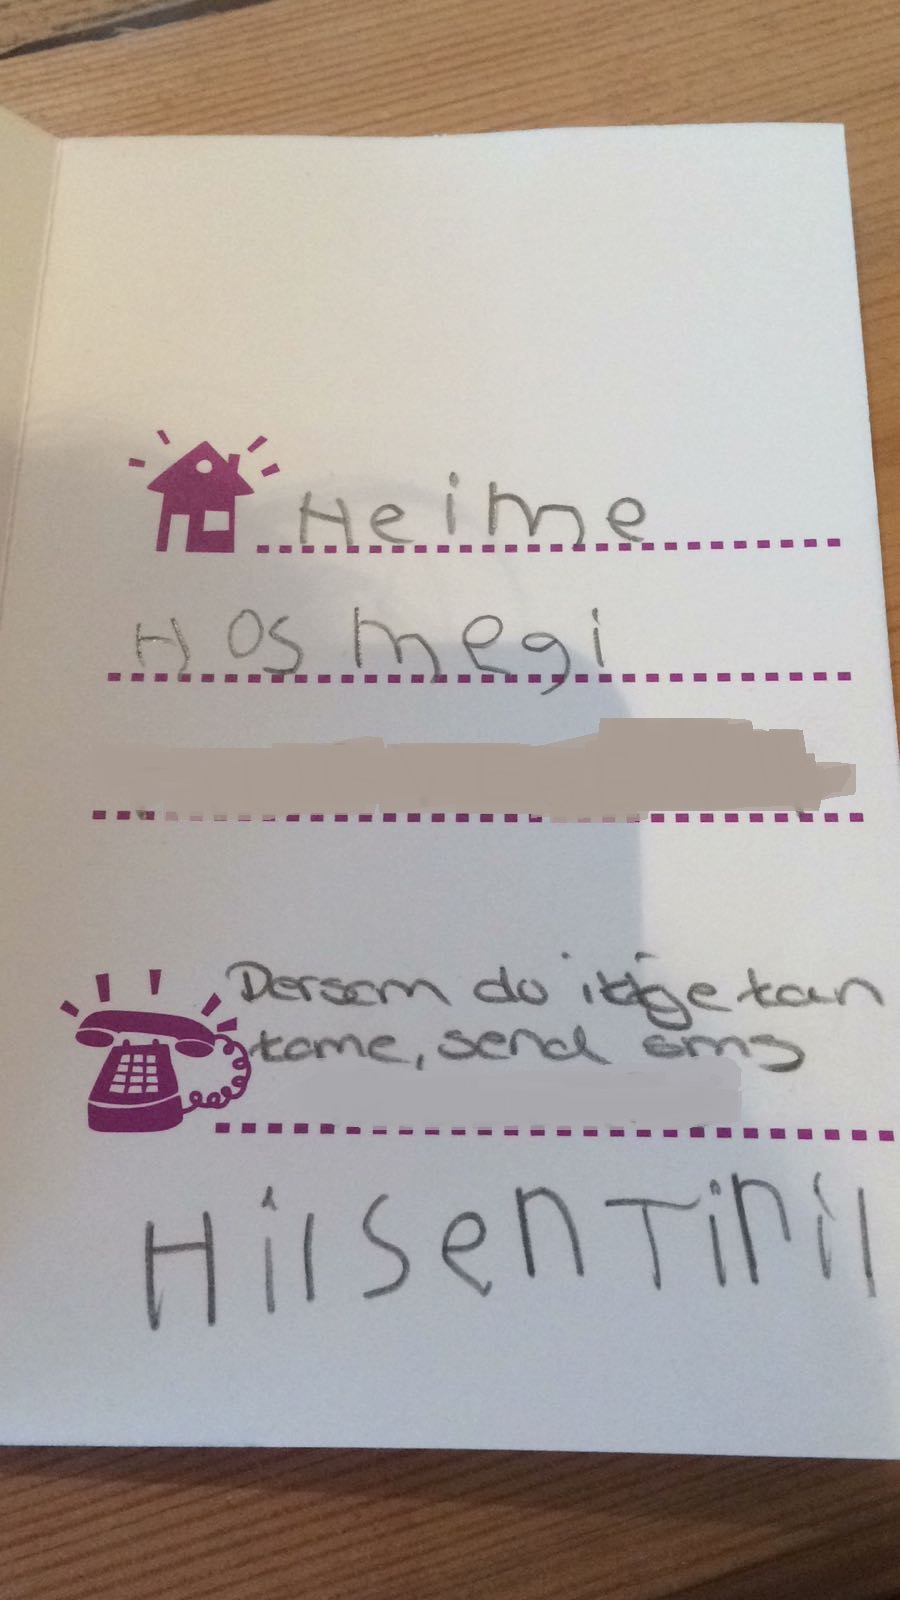 Heime
Hos megi
Dersom du ikkje kan
kome, send sms
Hilsen Tinil